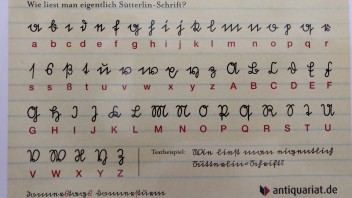 Wie liest man eigentlich Sütterlin-Schrift?
a b c d e f g h i j k l m n o p q r
a b c d e f g h i j k l m n o p q r
ſ s ß t u v w x y z A B C D E F
s s ß t u v w x y z A B C D E F
G H I J K L M N O P Q R S T U
G H I J K L M N O P Q R S T U
V W X Y Z
V W X Y Z
Textbeispiel: Wie liest man eigentlich
Sütterlin-Schrift?
antiquariat.de